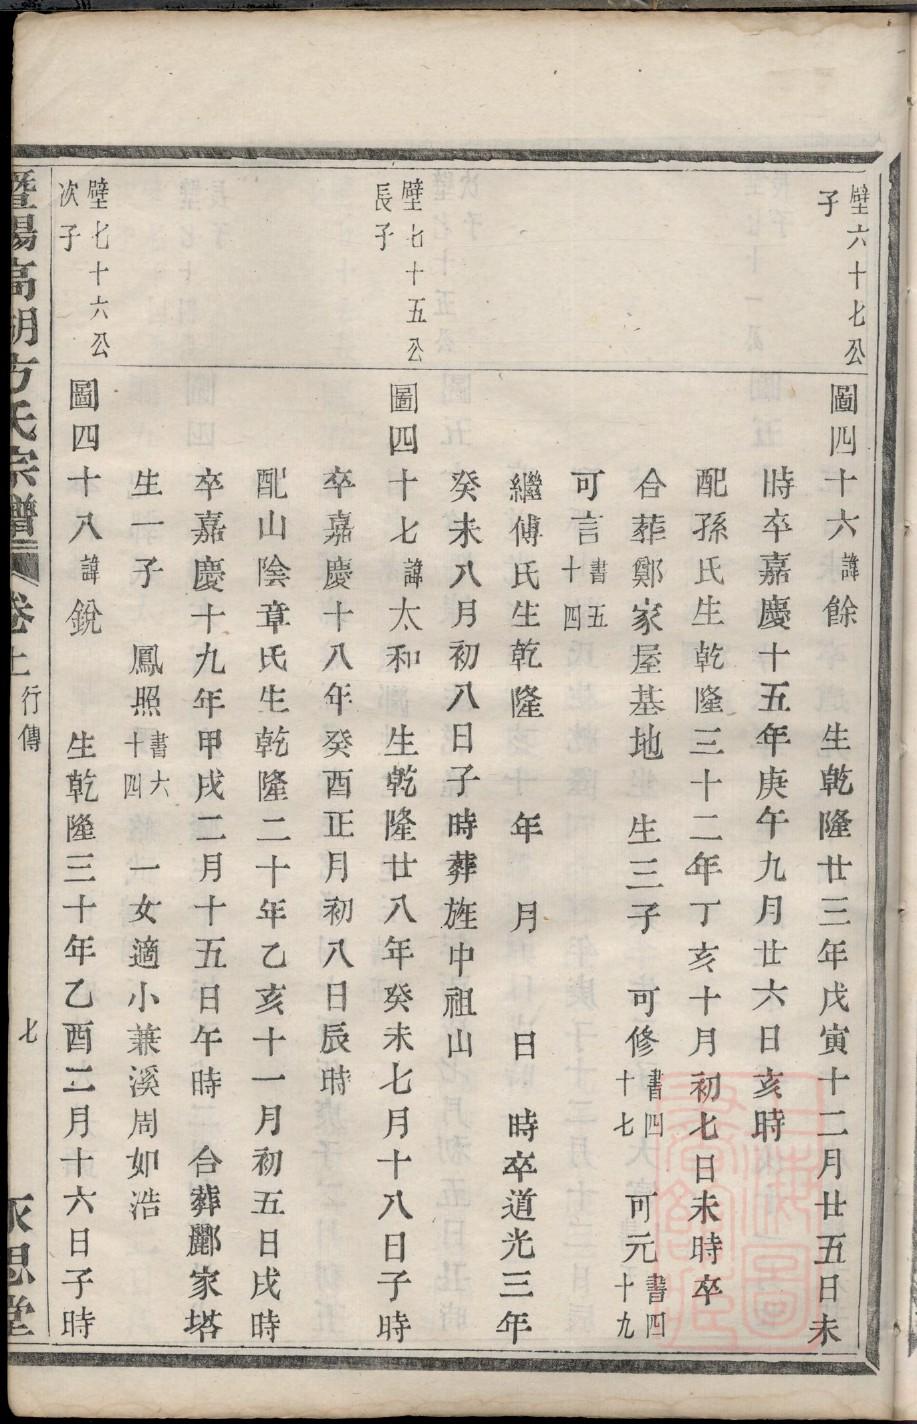 壁六十七公
子
圖四十六諱餘　生乾隆廿三年戊寅十二月廿五日未
時卒嘉慶十五年庚午九月廿六日亥時
配孫氏生乾隆三十二年丁亥十月初七日未時卒
合葬鄭家屋基地　生三子　可修書四十七　可元書四十九
可言書五十四
繼傅氏生乾隆　年　月　日　時卒道光三年
癸未八月初八日子時葬旌中祖山
壁七十五公
長子
圖四十七諱太和　生乾隆廿八年癸未七月十八日子時
卒嘉慶十八年癸酉正月初八日辰時
配山陰章氏生乾隆二十年乙亥十一月初五日戌時
卒嘉慶十九年甲戌二月十五日午時　合葬酈家塔
生一子　鳳照書六十四　一女適小蒹溪周如浩
壁七十六公
次子
圖四十八諱銳　生乾隆三十年乙酉二月十六日子時
暨陽高湖方氏宗譜　卷上　行傳　七　永思堂